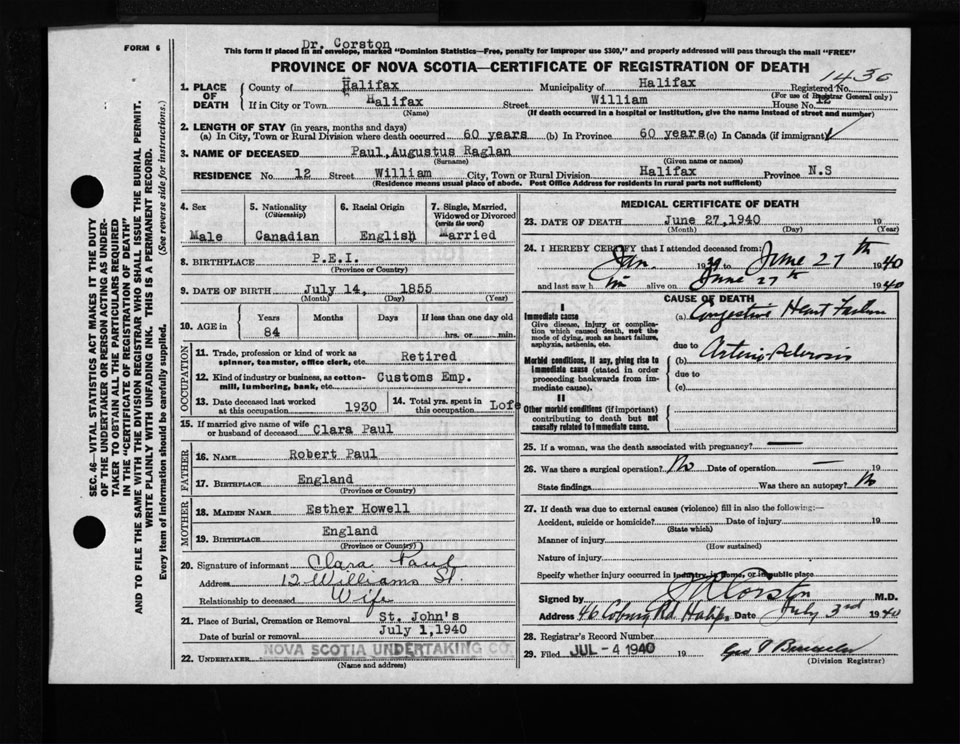 FORM 6
Dr. Corston
This form if placed in an envelope, marked "Dominion Statistics—Free, penalty for improper use $300," and properly addressed will pass through the mail "FREE"
PROVINCE OF NOVA SCOTIA—CERTIFICATE OF REGISTRATION OF DEATH
1436
1. PLACE OF DEATH
County of Halifax Municipality of Halifax Registered No.
(For use of Registrar General only)
If in City or Town Halifax Street William House No. 12
(Name) (If death occurred in a hospital or institution, give the name instead of street and number)
2. LENGTH OF STAY (in years, months and days)
(a) In City, Town or Rural Division where death occurred 60 years (b) In Province 60 years (c) In Canada (if immigrant)
3. NAME OF DECEASED Paul, Augustus Raglan
(Surname) (Given name or names)
RESIDENCE No. 12 Street William City, Town or Rural Division Halifax Province N.S
(Residence means usual place of abode. Post Office Address for residents in rural parts not sufficient)
4. Sex
Male
5. Nationality
(Citizenship)
Canadian
6. Racial Origin
English
7. Single, Married, Widowed or Divorced
(write the word)
Married
8. BIRTHPLACE P.E.I.
(Province or Country)
9. DATE OF BIRTH July 14, 1855
(Month) (Day) (Year)
10. AGE in Years Months Days If less than one day old
84 hrs. or min.
OCCUPATION
11. Trade, profession or kind of work as spinner, teamster, office clerk, etc. Retired
12. Kind of industry or business, as cotton-mill, lumbering, bank, etc. Customs Emp.
13. Date deceased last worked at this occupation 1930
14. Total yrs. spent in this occupation Lofe
15. If married give name of wife or husband of deceased Clara Paul
FATHER
16. NAME Robert Paul
17. BIRTHPLACE England
(Province or Country)
MOTHER
18. MAIDEN NAME Esther Howell
19. BIRTHPLACE England
(Province or Country)
20. Signature of informant Clara Paul
Address 12 Williams St.
Relationship to deceased Wife
21. Place of Burial, Cremation or Removal St. John's
Date of burial or removal July 1, 1940
22. UNDERTAKER NOVA SCOTIA UNDERTAKING CO.
(Name and address)
MEDICAL CERTIFICATE OF DEATH
23. DATE OF DEATH June 27, 1940 19
(Month) (Day) (Year)
24. I HEREBY CERTIFY that I attended deceased from:
Jan. 1939 to June 27th 1940
and last saw him alive on June 27th 1940
CAUSE OF DEATH
I
Immediate cause
Give disease, injury or complication which caused death, not the mode of dying, such as heart failure, asphyxia, asthenia, etc.
(a) Congestive Heart Failure
due to
Morbid conditions, if any, giving rise to immediate cause (stated in order proceeding backwards from immediate cause).
(b) Arterio-sclerosis
due to
(c)
II
Other morbid conditions (if important) contributing to death but not causally related to immediate cause.
25. If a woman, was the death associated with pregnancy? —
26. Was there a surgical operation? No Date of operation — 19
State findings Was there an autopsy? No
27. If death was due to external causes (violence) fill in also the following:—
Accident, suicide or homicide? Date of injury 19
(State which)
Manner of injury
(How sustained)
Nature of injury
Specify whether injury occurred in industry, in home, or in public place
Signed by S A Corston M.D.
Address 46 Coburg Rd. Halifax Date July 3rd 1940
28. Registrar's Record Number
29. Filed JUL - 4 1940 19
(Division Registrar)
SEC. 46—VITAL STATISTICS ACT MAKES IT THE DUTY
OF THE UNDERTAKER OR PERSON ACTING AS UNDER-
TAKER TO OBTAIN ALL THE PARTICULARS REQUIRED
IN THE "CERTIFICATE OF REGISTRATION OF DEATH"
AND TO FILE THE SAME WITH THE DIVISION REGISTRAR WHO SHALL ISSUE THE BURIAL PERMIT.
WRITE PLAINLY WITH UNFADING INK. THIS IS A PERMANENT RECORD.
Every item of information should be carefully supplied. (See reverse side for instructions.)